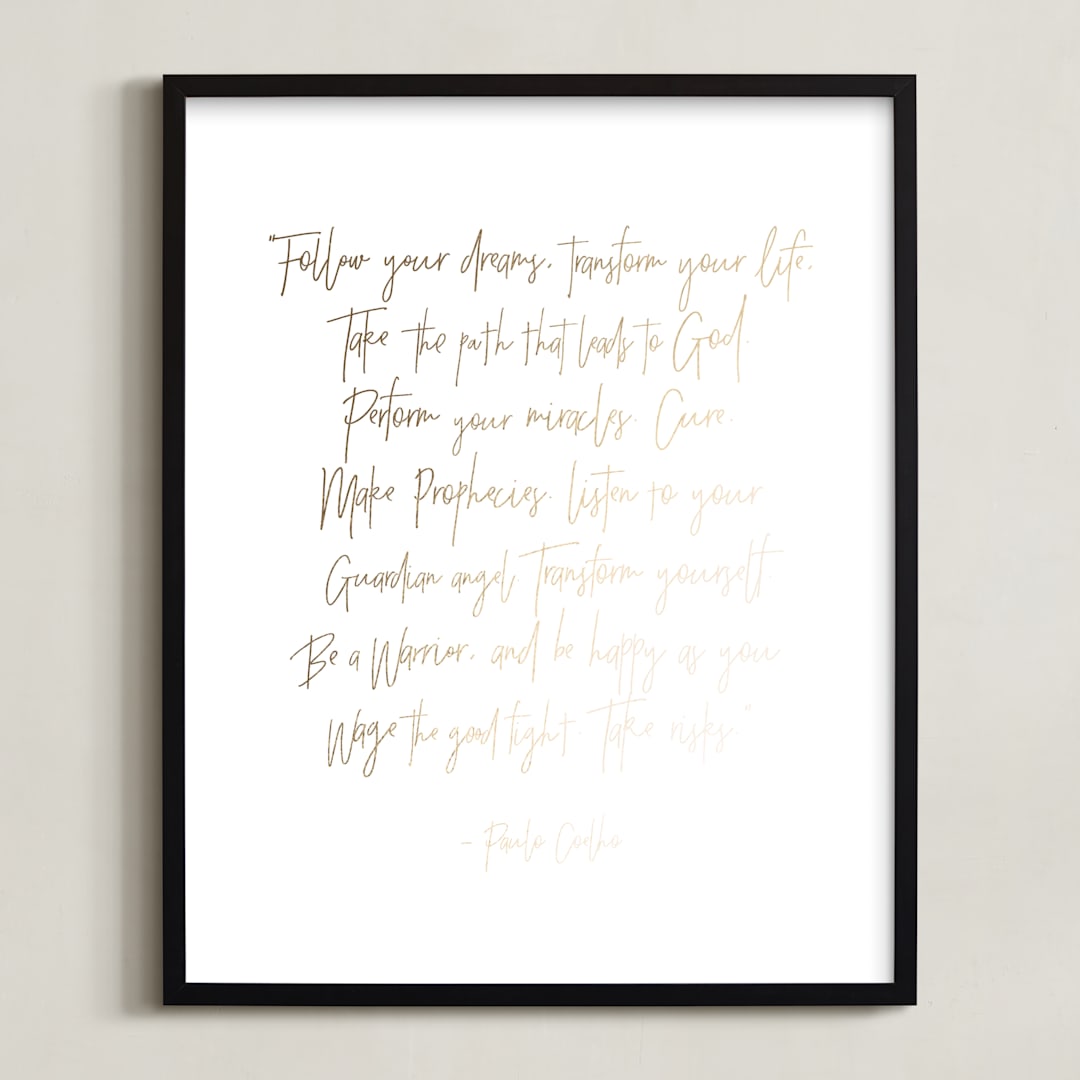 "Follow your dreams, transform your life.
Take the path that leads to God.
Perform your miracles. Cure.
Make Prophecies. Listen to your
Guardian angel. Transform yourself.
Be a Warrior, and be happy as you
Wage the good fight. Take risks."
- Paulo Coelho